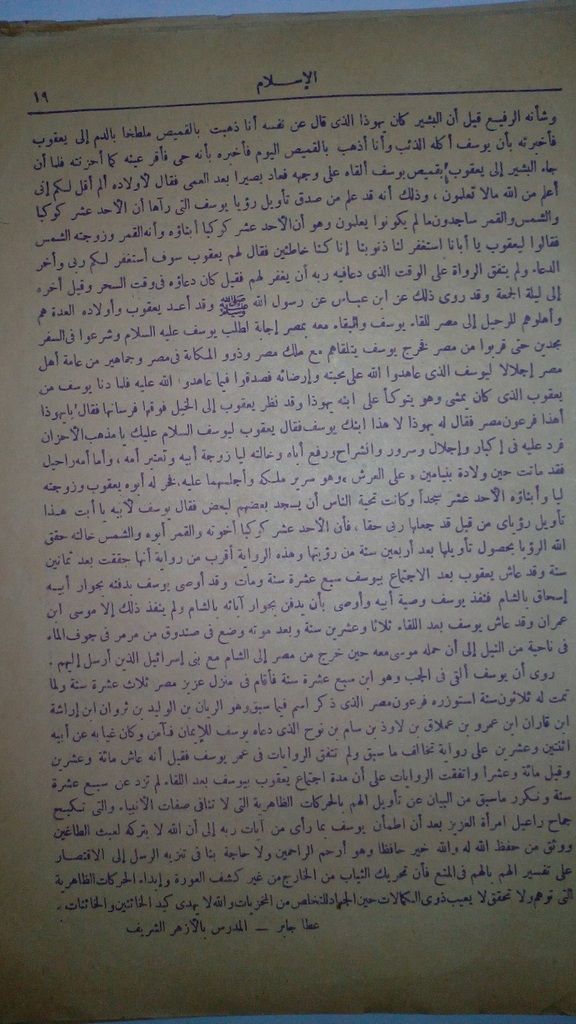 الإسلام
١٩
وشأنه الرفيع قيل أن البشير كان يهوذا الذى قال عن نفسه أنا ذهبت بالقميص ملطخا بالدم إلى يعقوب
فأخبرته بأن يوسف أكله الذئب وأنا أذهب بالقميص اليوم فأخبره بأنه حى فأقر عينه كما أحزنته فلما أن
جاء البشير إلى يعقوب بقميص يوسف ألقاه على وجهه فعاد بصيرا بعد العمى فقال لأولاده ألم أقل لكم إنى
أعلم من الله مالا تعلمون ، وذلك أنه قد علم من صدق تأويل رؤيا يوسف التى رآها أن الأحد عشر كوكبا
والشمس والقمر ساجدون مالم يكونوا يعلمون وهو أن الأحد عشر كوكبا أبناؤه وأنه القمر وزوجته الشمس
فقالوا ليعقوب يا أبانا استغفر لنا ذنوبنا إنا كنا خاطئين فقال لهم يعقوب سوف أستغفر لكم ربى وأخر
الدعاء ولم يتفق الرواة على الوقت الذى دعا فيه ربه أن يغفر لهم فقيل كان دعاؤه فى وقت السحر وقيل أخره
إلى ليلة الجمعة وقد روى ذلك عن ابن عباس عن رسول الله ﷺ وقد أعد يعقوب وأولاده العدة هم
وأهلوهم للرحيل إلى مصر للقاء يوسف والبقاء معه بمصر إجابة لطلب يوسف عليه السلام وشرعوا فى السفر
مجدين حتى قربوا من مصر فخرج يوسف يتلقاهم مع ملك مصر وذوو المكانة فى مصر وجماهير من عامة أهل
مصر إجلالا ليوسف الذى عاهدوا الله على محبته وإرضائه فصدقوا فيما عاهدوا الله عليه فلما دنا يوسف من
يعقوب الذى كان يمشى وهو يتوكأ على ابنه يهوذا وقد نظر يعقوب إلى الخيل فوقها فرسانها فقال يايهوذا
أهذا فرعون مصر فقال له يهوذا لا هذا ابنك يوسف فقال يعقوب ليوسف السلام عليك يامذهب الأحزان
فرد عليه فى إكبار وإجلال وسرور وانشراح ورفع أباه وخالته ليا زوجة أبيه وتعتبر أمه ، وأما أمه راحيل
فقد ماتت حين ولادة بنيامين ، على العرش ، وهو سرير ملكه وأجلسهما عليه . فخر له أبوه يعقوب وزوجته
ليا وأبناؤه الأحد عشر سجداً وكانت تحية الناس أن يسجد بعضهم لبعض فقال يوسف لأبيه يا أبت هذا
تأويل رؤياى من قبل قد جعلها ربى حقا ، فأن الأحد عشر كوكبا أخوته والقمر أبوه والشمس خالته حقق
الله الرؤيا بحصول تأويلها بعد أربعين سنة من رؤيتها وهذه الرواية أقرب من رواية أنها حققت بعد ثمانين
سنة وقد عاش يعقوب بعد الاجتماع بيوسف سبع عشرة سنة ومات وقد أوصى يوسف بدفنه بجوار أبيه
إسحاق بالشام فنفذ يوسف وصية أبيه وأوصى بأن يدفن بجوار آبائه بالشام ولم ينفذ ذلك إلا موسى ابن
عمران وقد عاش يوسف بعد اللقاء ثلاثا وعشرين سنة وبعد موته وضع فى صندوق من مرمر فى جوف الماء
فى ناحية من النيل إلى أن حمله موسى معه حين خرج من مصر إلى الشام مع بنى إسرائيل الذين أرسل إليهم .
روى أن يوسف ألقى فى الجب وهو ابن سبع عشرة سنة فأقام فى منزل عزيز مصر ثلاث عشرة سنة ولما
تمت له ثلاثون سنة استوزره فرعون مصر الذى ذكر اسم فيما سبق وهو الريان بن الوليد بن ثروان ابن إراشة
ابن قاران ابن عمرو بن عملاق بن لاوذ بن سام بن نوح الذى دعاه يوسف للإيمان فآمن وكان غيابه عن أبيه
اثنتين وعشرين على رواية تخالف ما سبق ولم تتفق الروايات فى عمر يوسف فقيل أنه عاش مائة وعشرين
وقيل مائة وعشرا واتفقت الروايات على أن مدة اجتماع يعقوب بيوسف بعد اللقاء لم تزد عن سبع عشرة
سنة ونكرر ماسبق من البيان عن تأويل الهم بالحركات الظاهرية التى لا تنافى صفات الأنبياء والتى تكبح
جماح راعيل امرأة العزيز بعد أن اطمأن يوسف بما رأى من آيات ربه إلى أن الله لا يتركه لعبث الطاغين
ووثق من حفظ الله له والله خير حافظا وهو أرحم الراحمين ولا حاجة بنا فى تنزيه الرسل إلى الاقتصار
على تفسير الهم بالهم فى المنع فأن تحريك الثياب من الخارج من غير كشف العورة وإبداء الحركات الظاهرية
التى توهم ولا تحقق لا يعيب ذوى الكمالات حين الجهاد للتخلص من المخزيات والله لا يهدى كيد الخائنين والخائنات .
عطا جابر — المدرس بالأزهر الشريف